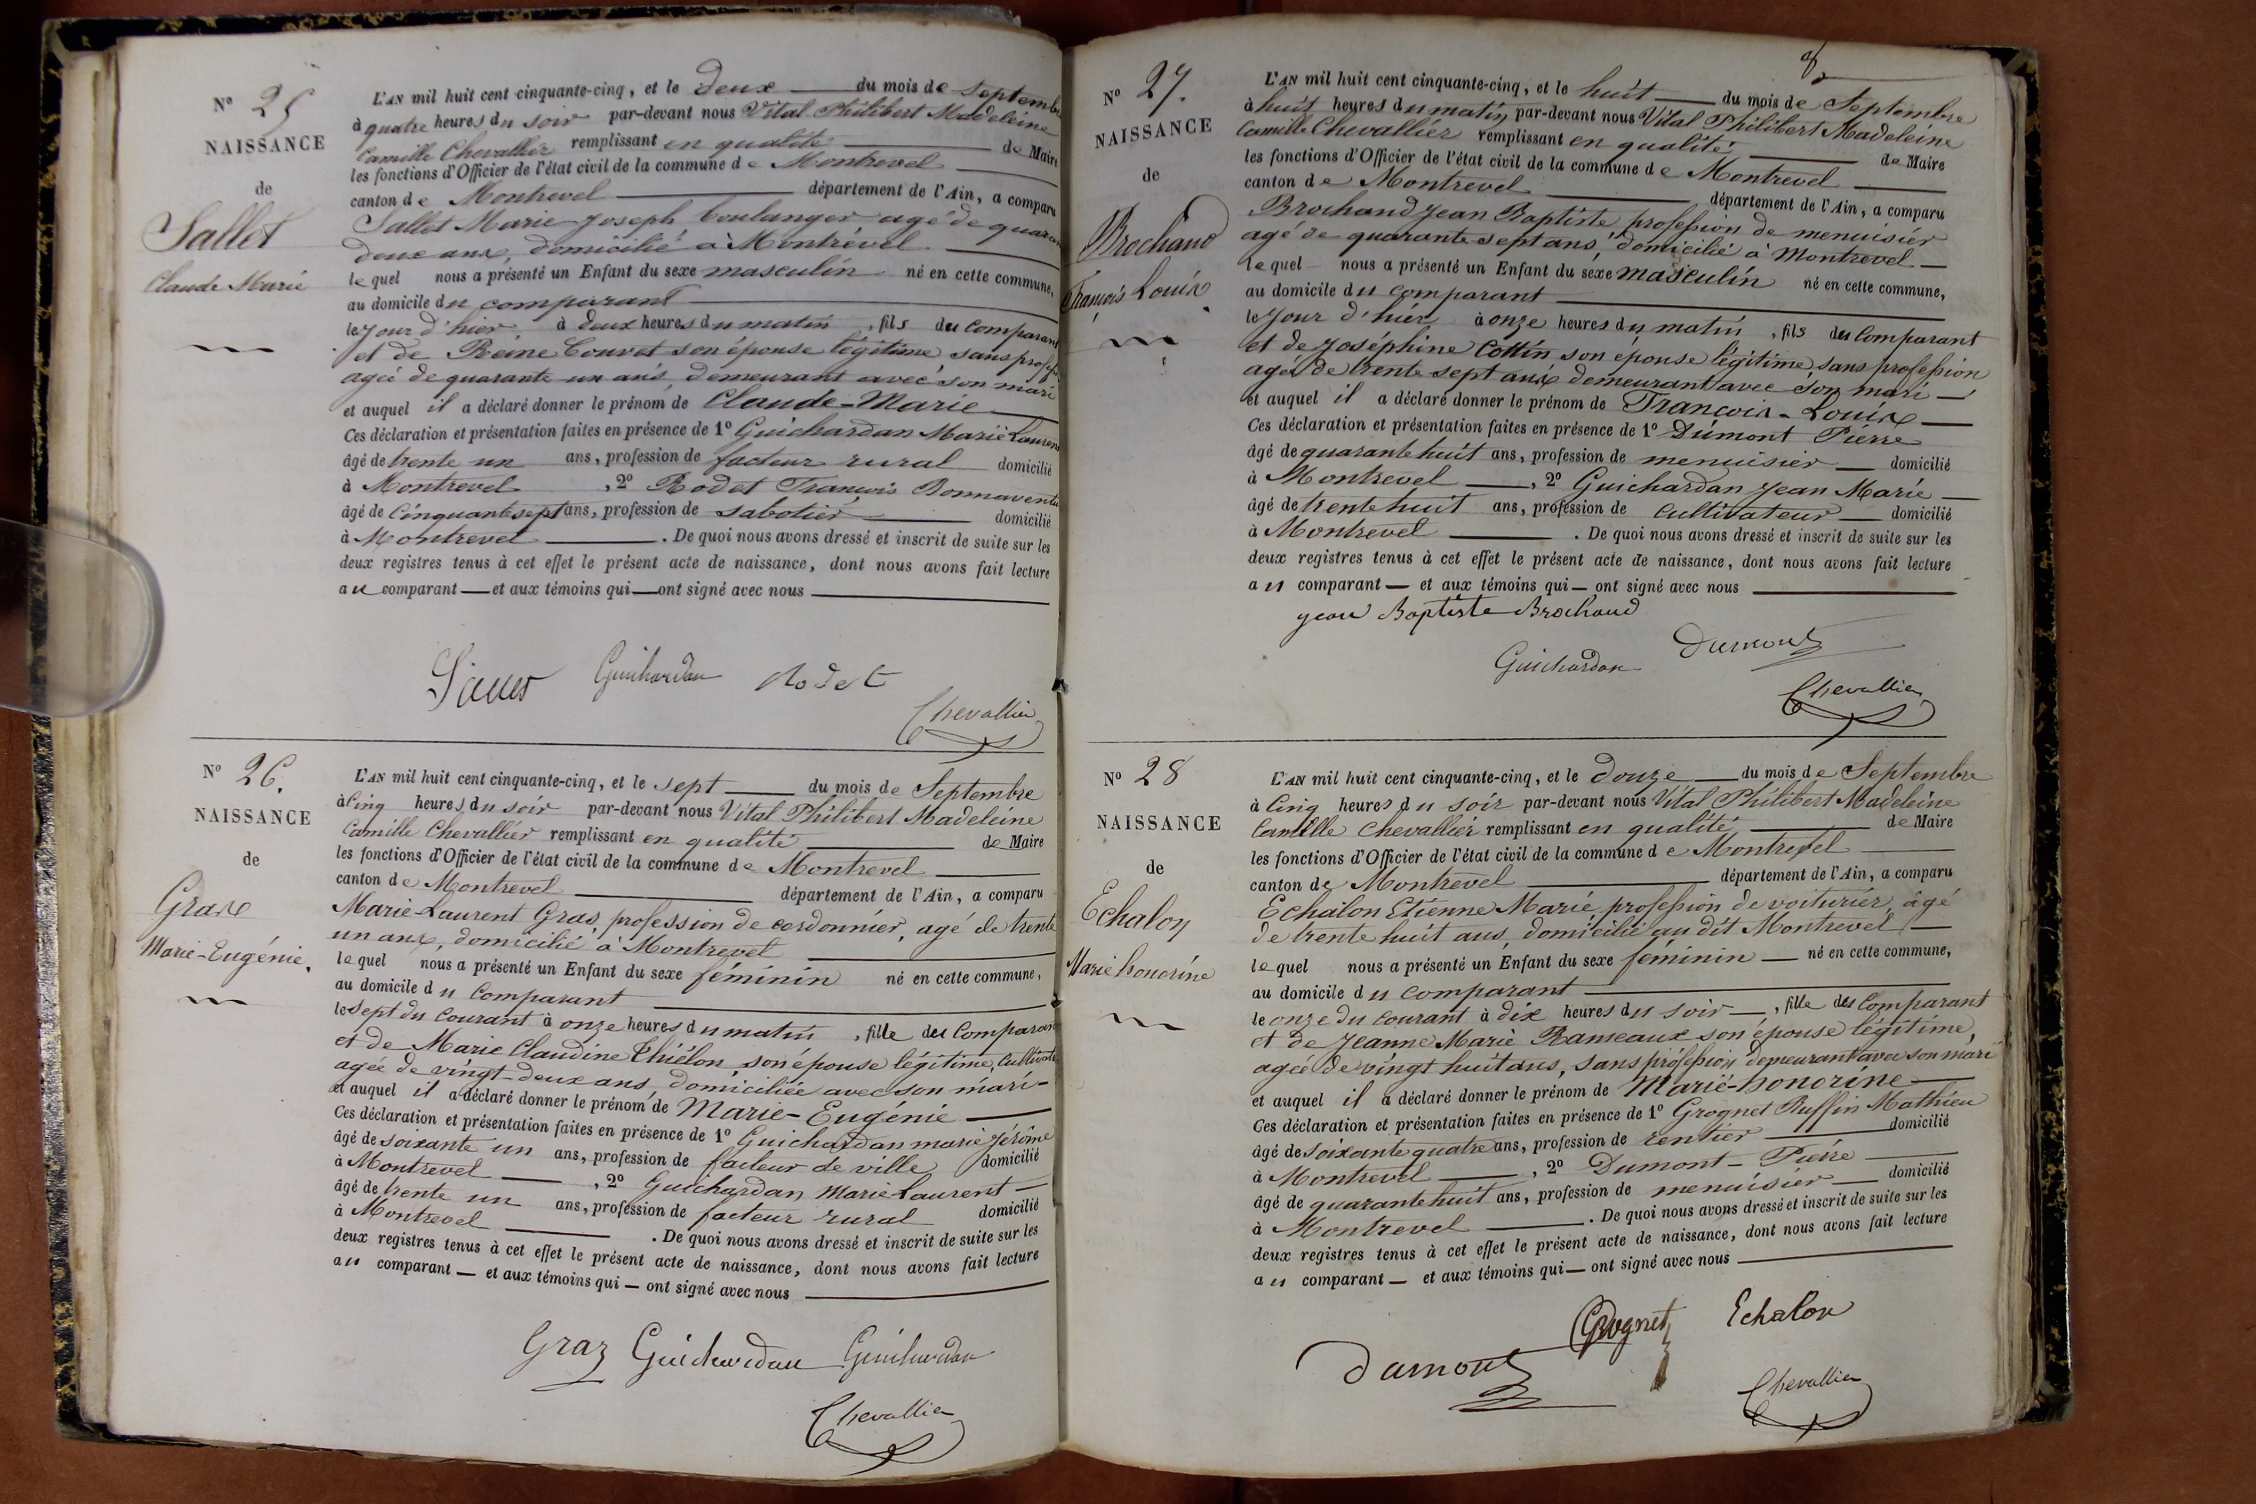 N° 25
NAISSANCE
de
Sallet
Claude Marie
L'AN mil huit cent cinquante-cinq, et le Deux du mois de Septembre
à quatre heures du soir par-devant nous Vital Philibert Madeleine
Camille Chevallier remplissant en qualité de Maire
les fonctions d'Officier de l'état civil de la commune de Montrevel
canton de Montrevel département de l'Ain, a comparu
Sallet Marie Joseph boulanger agé de quaran
deux ans, domicilié à Montrével
lequel nous a présenté un Enfant du sexe masculin né en cette commune,
au domicile du comparant
le jour d'hier à deux heures du matin, fils du Comparant
et de Reine Couvet son épouse légitime, sans profes
agée de quarante un ans, demeurant avec son mari
et auquel il a déclaré donner le prénom de Claude-Marie
Ces déclaration et présentation faites en présence de 1° Guichardan Marie Laurent
âgé de trente un ans, profession de facteur rural domicilié
à Montrevel, 2° Rodet François Bonnaventu
âgé de Cinquante sept ans, profession de sabotier domicilié
à Montrevel. De quoi nous avons dressé et inscrit de suite sur les
deux registres tenus à cet effet le présent acte de naissance, dont nous avons fait lecture
au comparant et aux témoins qui ont signé avec nous
Guichardan Rodet
Chevallier
N° 26.
NAISSANCE
de
Gras
Marie-Eugénie.
L'AN mil huit cent cinquante-cinq, et le sept du mois de Septembre
à Cinq heures du soir par-devant nous Vital Philibert Madeleine
Camille Chevallier remplissant en qualité de Maire
les fonctions d'Officier de l'état civil de la commune de Montrevel
canton de Montrevel département de l'Ain, a comparu
Marie-Laurent Gras, profession de cordonnier, agé de trente
un ans, domicilié à Montrevel
lequel nous a présenté un Enfant du sexe féminin né en cette commune,
au domicile du Comparant
le sept du courant à onze heures du matin, fille du Comparant
et de Marie Claudine Thiélon son épouse légitime, Cultivat
agée de vingt-deux ans, domiciliée avec son mari-
et auquel il a déclaré donner le prénom de Marie-Eugénie
Ces déclaration et présentation faites en présence de 1° Guichardan marie Jérôme
âgé de soixante un ans, profession de facteur de ville domicilié
à Montrevel, 2° Guichardan Marie Laurent
âgé de trente un ans, profession de facteur rural domicilié
à Montrevel. De quoi nous avons dressé et inscrit de suite sur les
deux registres tenus à cet effet le présent acte de naissance, dont nous avons fait lecture
au comparant et aux témoins qui ont signé avec nous
Graz Guichardan Guichardan
Chevallier
8
N° 27.
NAISSANCE
de
Brochand
François Louis
L'AN mil huit cent cinquante-cinq, et le huit du mois de Septembre
à huit heures du matin par-devant nous Vital Philibert Madeleine
Camille Chevallier remplissant en qualité de Maire
les fonctions d'Officier de l'état civil de la commune de Montrevel
canton de Montrevel département de l'Ain, a comparu
Brochand Jean Baptiste profession de menuisier
agé de quarante sept ans, domicilié à Montrevel
lequel nous a présenté un Enfant du sexe masculin né en cette commune,
au domicile du comparant
le jour d'hier à onze heures du matin, fils du Comparant
et de Joséphine Cottin son épouse légitime, sans profession
agée de trente sept ans demeurant avec son mari
et auquel il a déclaré donner le prénom de François-Louis
Ces déclaration et présentation faites en présence de 1° Dumont Pierre
âgé de quarante huit ans, profession de menuisier domicilié
à Montrevel, 2° Guichardan Jean Marie
âgé de trente huit ans, profession de cultivateur domicilié
à Montrevel. De quoi nous avons dressé et inscrit de suite sur les
deux registres tenus à cet effet le présent acte de naissance, dont nous avons fait lecture
au comparant et aux témoins qui ont signé avec nous
jean Baptiste Brochand
Guichardan Dumont
Chevallier
N° 28
NAISSANCE
de
Echalon
Marie honorine
L'AN mil huit cent cinquante-cinq, et le douze du mois de Septembre
à Cinq heures du soir par-devant nous Vital Philibert Madeleine
Camille Chevallier remplissant en qualité de Maire
les fonctions d'Officier de l'état civil de la commune de Montrevel
canton de Montrevel département de l'Ain, a comparu
Echalon Etienne Marie profession de voiturier, âgé
de trente huit ans, domicilié au dit Montrevel
lequel nous a présenté un Enfant du sexe féminin né en cette commune,
au domicile du comparant
le onze du courant à dix heures du soir, fille du Comparant
et de Jeanne Marie Rameaux son épouse légitime,
agée de vingt huit ans, sans profession demeurant avec son mari
et auquel il a déclaré donner le prénom de Marie-honorine
Ces déclaration et présentation faites en présence de 1° Grognet Ruffin Mathieu
âgé de soixante quatre ans, profession de rentier domicilié
à Montrevel, 2° Dumont-Pierre
âgé de quarante huit ans, profession de menuisier domicilié
à Montrevel. De quoi nous avons dressé et inscrit de suite sur les
deux registres tenus à cet effet le présent acte de naissance, dont nous avons fait lecture
au comparant et aux témoins qui ont signé avec nous
Dumont Grognet Echalon
Chevallier